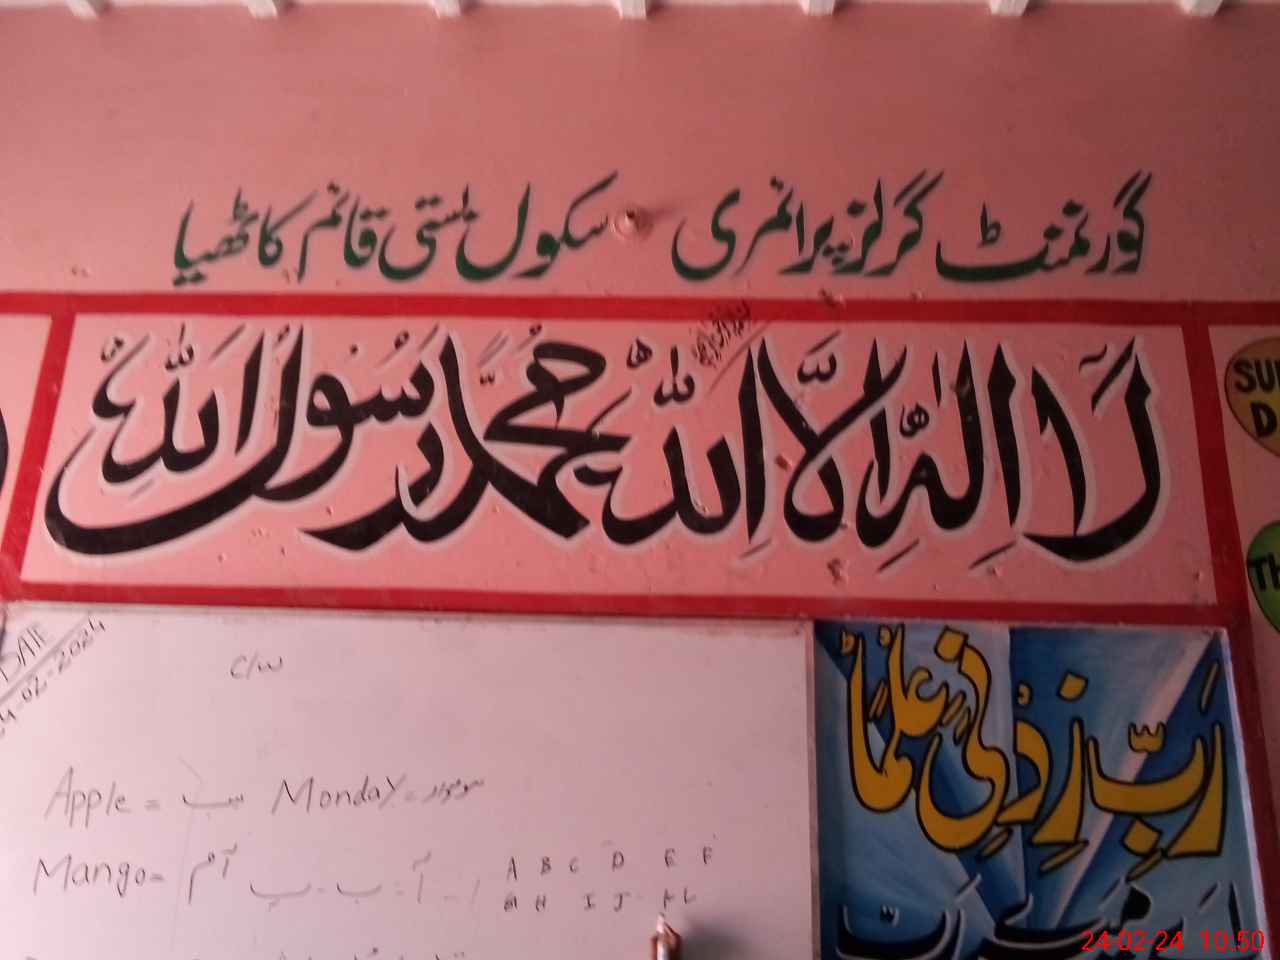 گورنمنٹ گرلز پرائمری سکول بستی قائم کاٹھیا
لَا اِلٰهَ اِلَّا اللّٰهُ مُحَمَّدٌ رَّسُوْلُ اللّٰهِ
SU
D
TH
DATE
24-02-2024
C/W
Apple = سیب Monday = سوموار
Mango = آم آ - ب - پ
A B C D E F
G H I J K L
رَبِّ زِدْنِیْ عِلْمًا
اے میرے رب
24-02-24 10:50